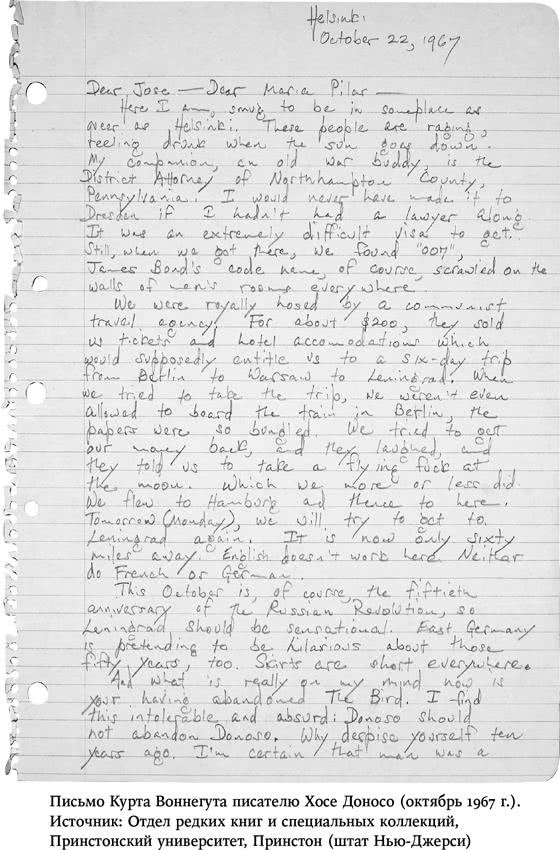 Helsinki
October 22, 1967
Dear Jose — Dear Maria Pilar —
Here I am, smug to be in someplace as
queer as Helsinki. These people are raging,
reeling drunk when the sun goes down.
My companion, an old war buddy, is the
District Attorney of Northhampton County,
Pennsylvania. I would never have made it to
Dresden if I hadn't had a lawyer along.
It was an extremely difficult visa to get.
Still, when we got there, we found "007",
James Bond's code name, of course, scrawled on the
walls of men's rooms everywhere.
We were royally hosed by a communist
travel agency. For about $200, they sold
us tickets and hotel accomodations which
would supposedly entitle us to a six-day trip
from Berlin to Warsaw to Leningrad. When
we tried to take the trip, we weren't even
allowed to board the train in Berlin, the
papers were so bungled. We tried to get
our money back, and they laughed, and
they told us to take a flying fuck at
the moon. Which we more or less did.
We flew to Hamburg and thence to here.
Tomorrow (Monday), we will try to get to
Leningrad again. It is now only sixty
miles away. English doesn't work here. Neither
do French or German.
This October is, of course, the fiftieth
anniversary of the Russian Revolution, so
Leningrad should be sensational. East Germany
is pretending to be hilarious about those
fifty years, too. Skirts are short everywhere.
And what is really on my mind now is
your having abandoned The Bird. I find
this intolerable and absurd: Donoso should
not abandon Donoso. Why despise yourself ten
years ago. I'm certain that man was a
Письмо Курта Воннегута писателю Хосе Доносо (октябрь 1967 г.).
Источник: Отдел редких книг и специальных коллекций,
Принстонский университет, Принстон (штат Нью-Джерси)